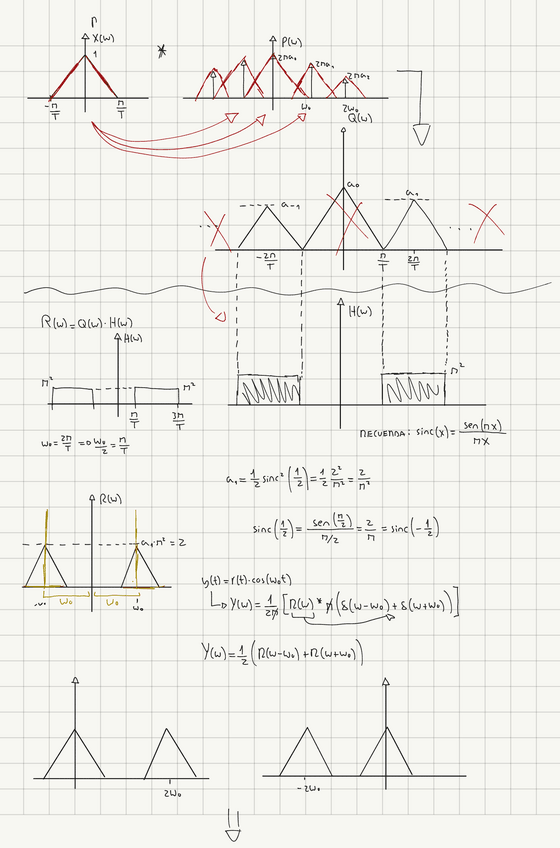 X(ω)
1
-π/T
π/T
*
P(ω)
2πa₀
2πa₁
2πa₂
ω₀
2ω₀
Q(ω)
a₀
a₋₁
a₁
...
...
-2π/T
π/T
2π/T
R(ω)=Q(ω)·H(ω)
H(ω)
π²
π²
π/T
3π/T
ω₀=2π/T => ω₀/2=π/T
H(ω)
π²
RECUERDA: sinc(x)=sen(πx)/πx
a₁=1/2 sinc²(1/2)=1/2 2²/π²=2/π²
sinc(1/2)=sen(π/2)/π/2=2/π=sinc(-1/2)
R(ω)
a₁·π²=2
-ω₀
ω₀
ω₀
ω₀
y(t)=r(t)·cos(ω₀t)
Y(ω)=1/2π[R(ω)*π(δ(ω-ω₀)+δ(ω+ω₀))]
Y(ω)=1/2(R(ω-ω₀)+R(ω+ω₀))
2ω₀
-2ω₀